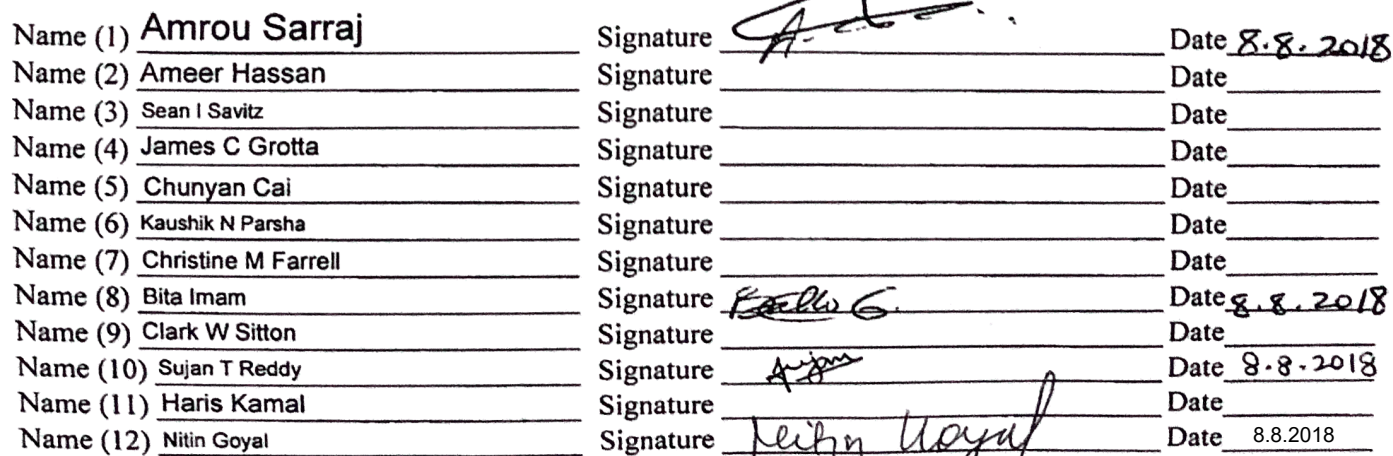 Name (1) Amrou Sarraj Signature Date 8.8.2018
Name (2) Ameer Hassan Signature Date
Name (3) Sean I Savitz Signature Date
Name (4) James C Grotta Signature Date
Name (5) Chunyan Cai Signature Date
Name (6) Kaushik N Parsha Signature Date
Name (7) Christine M Farrell Signature Date
Name (8) Bita Imam Signature Date 8.8.2018
Name (9) Clark W Sitton Signature Date
Name (10) Sujan T Reddy Signature Date 8.8.2018
Name (11) Haris Kamal Signature Date
Name (12) Nitin Goyal Signature Nitin Goyal Date 8.8.2018